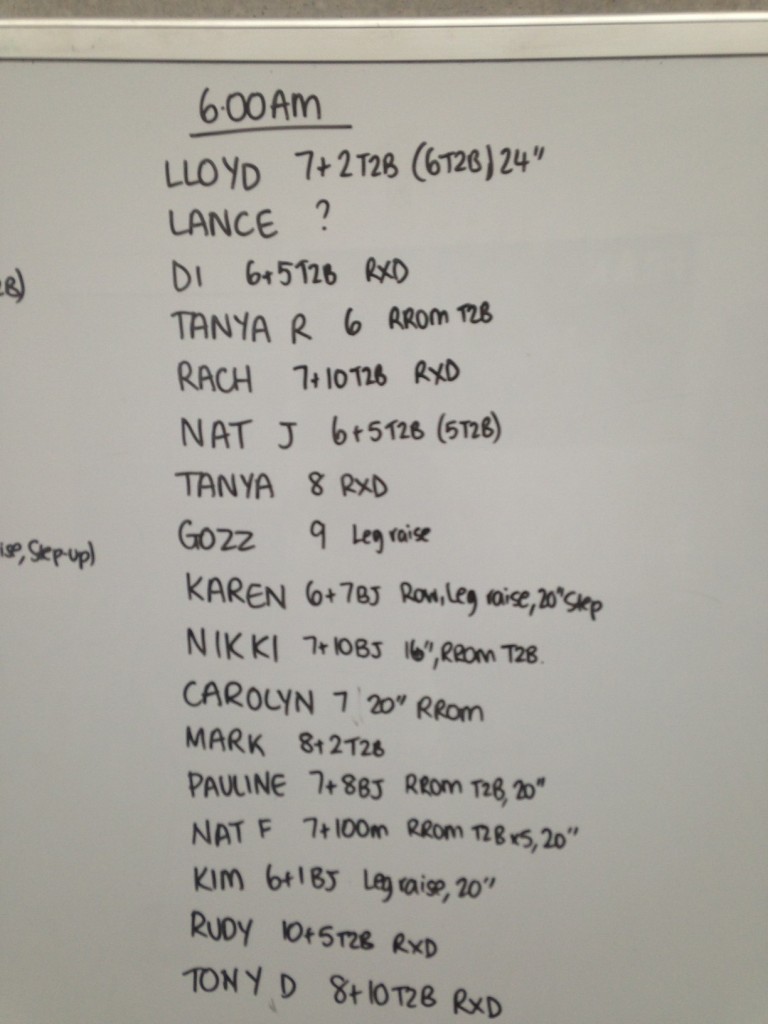 6.00AM
LLOYD 7+2T2B (6T2B) 24"
LANCE ?
DI 6+5T2B RXD
TANYA R 6 RROM T2B
RACH 7+10T2B RXD
NAT J 6+5T2B (5T2B)
TANYA 8 RXD
GOZZ 9 Leg raise
Step-up)
KAREN 6+7BJ Row, Leg raise, 20" Step
NIKKI 7+10BJ 16", RROM T2B.
CAROLYN 7 20" RROM
MARK 8+2T2B
PAULINE 7+8BJ RROM T2B, 20"
NAT F 7+100m RROM T2Bx5, 20"
KIM 6+1BJ Leg raise, 20"
RUDY 10+5T2B RXD
TONY D 8+10T2B RXD